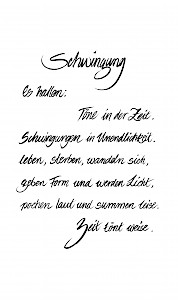 Schwingung
Es hallen:
Töne in der Zeit.
Schwingungen in Unendlichkeit.
leben, sterben, wandeln sich,
geben Form und werden Licht,
pochen laut und summen leise.
Zeit tönt weise.